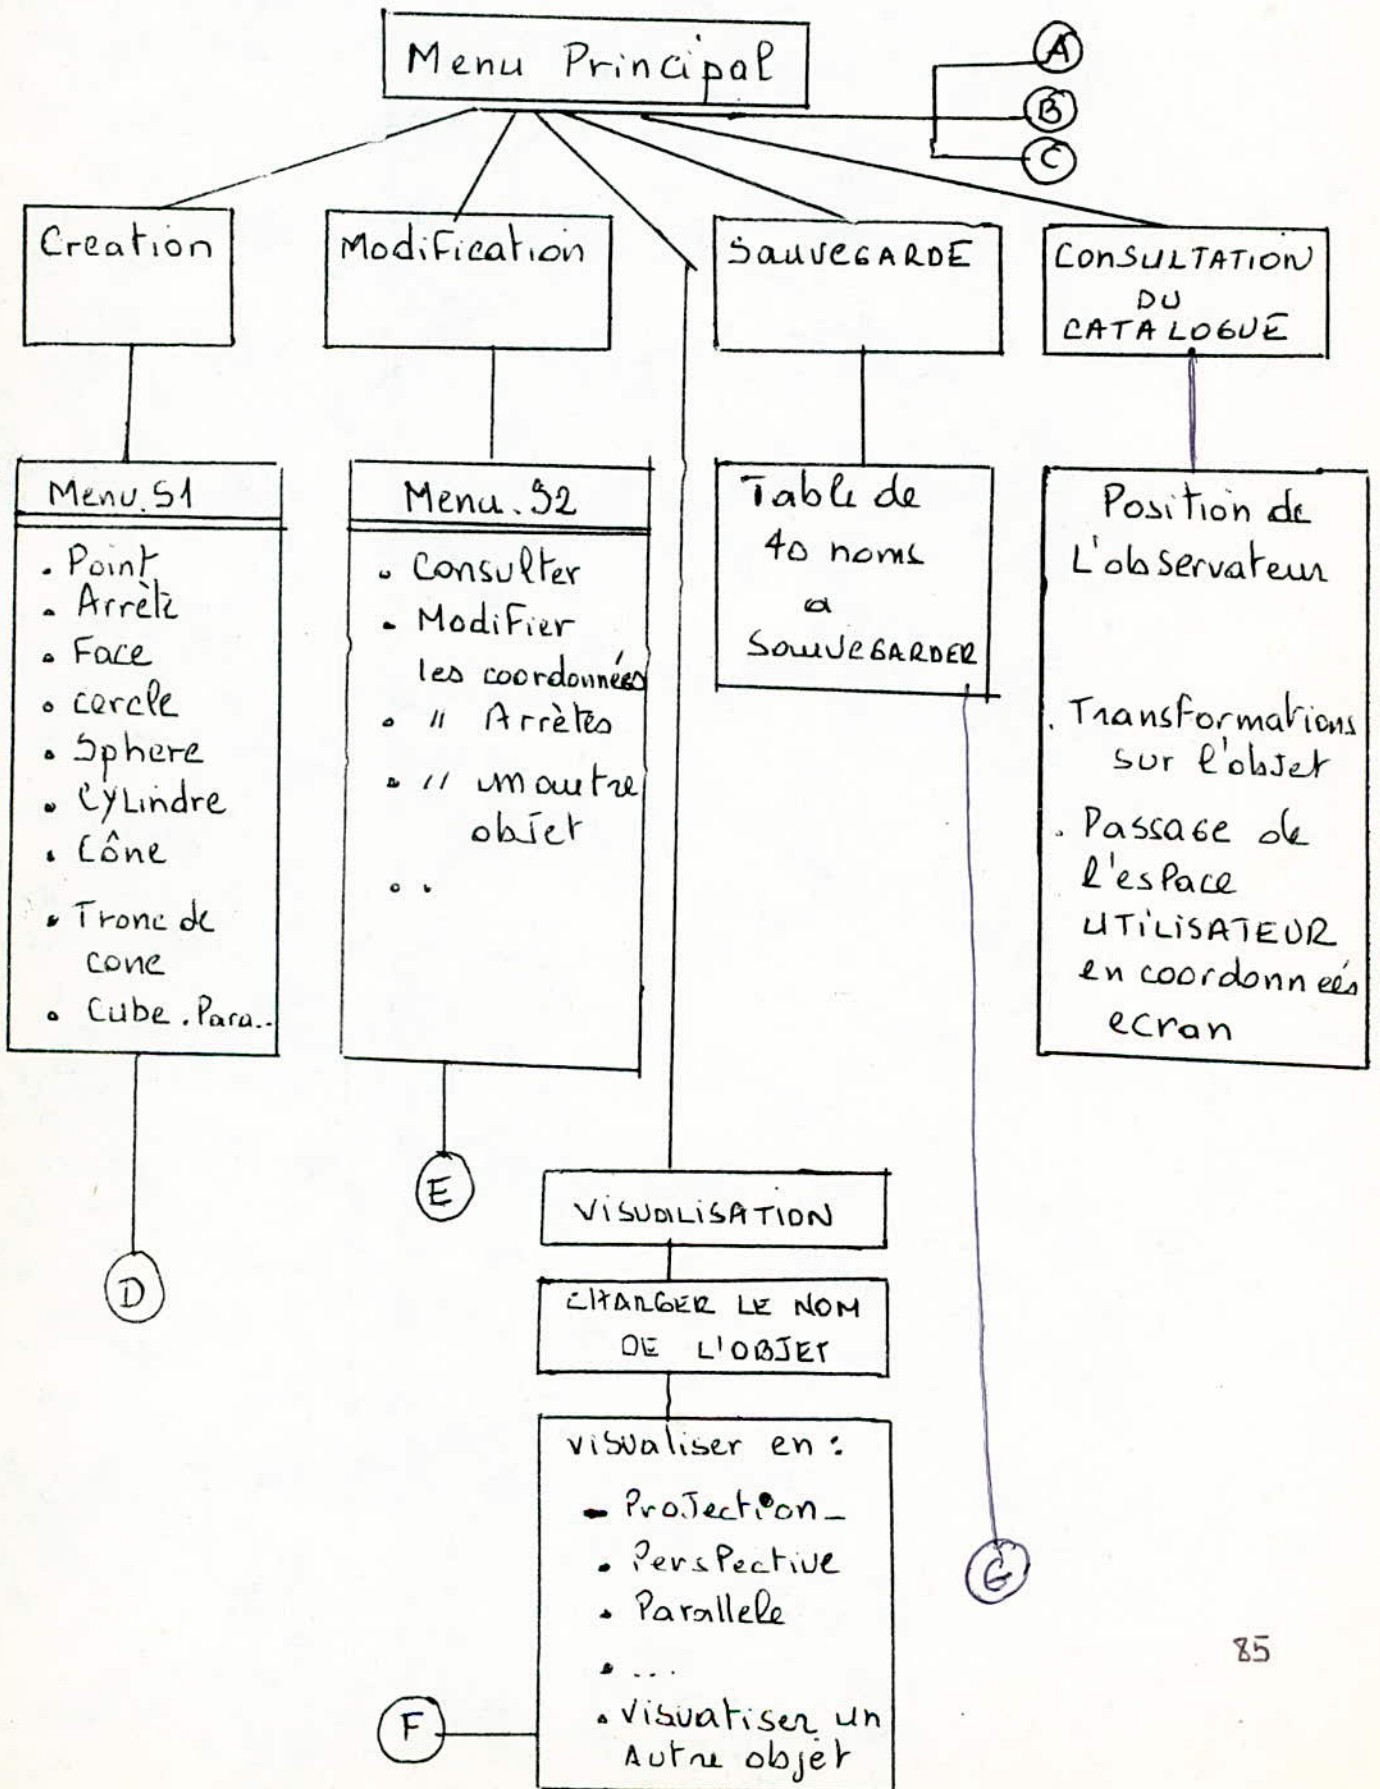 Menu Principal
A
B
C
Creation
Modification
SauveGARDE
CONSULTATION
DU
CATALOGUE
Menu.S1
. Point
. Arrête
. Face
. cercle
. Sphere
. Cylindre
. Cône
. Tronc de
cone
. Cube.Para..
Menu.S2
. Consulter
. Modifier
les coordonnées
. " Arrètes
. " un autre
objet
. .
Table de
40 noms
a
SauveGARDER
Position de
L'observateur
. Transformations
sur l'objet
. Passage de
l'espace
UTILISATEUR
en coordonneés
ecran
D
E
VISUALISATION
CHARGER LE NOM
DE L'OBJET
visualiser en :
- Projection_
. Perspective
. Parallele
. ...
. Visualiser un
Autre objet
F
G
85